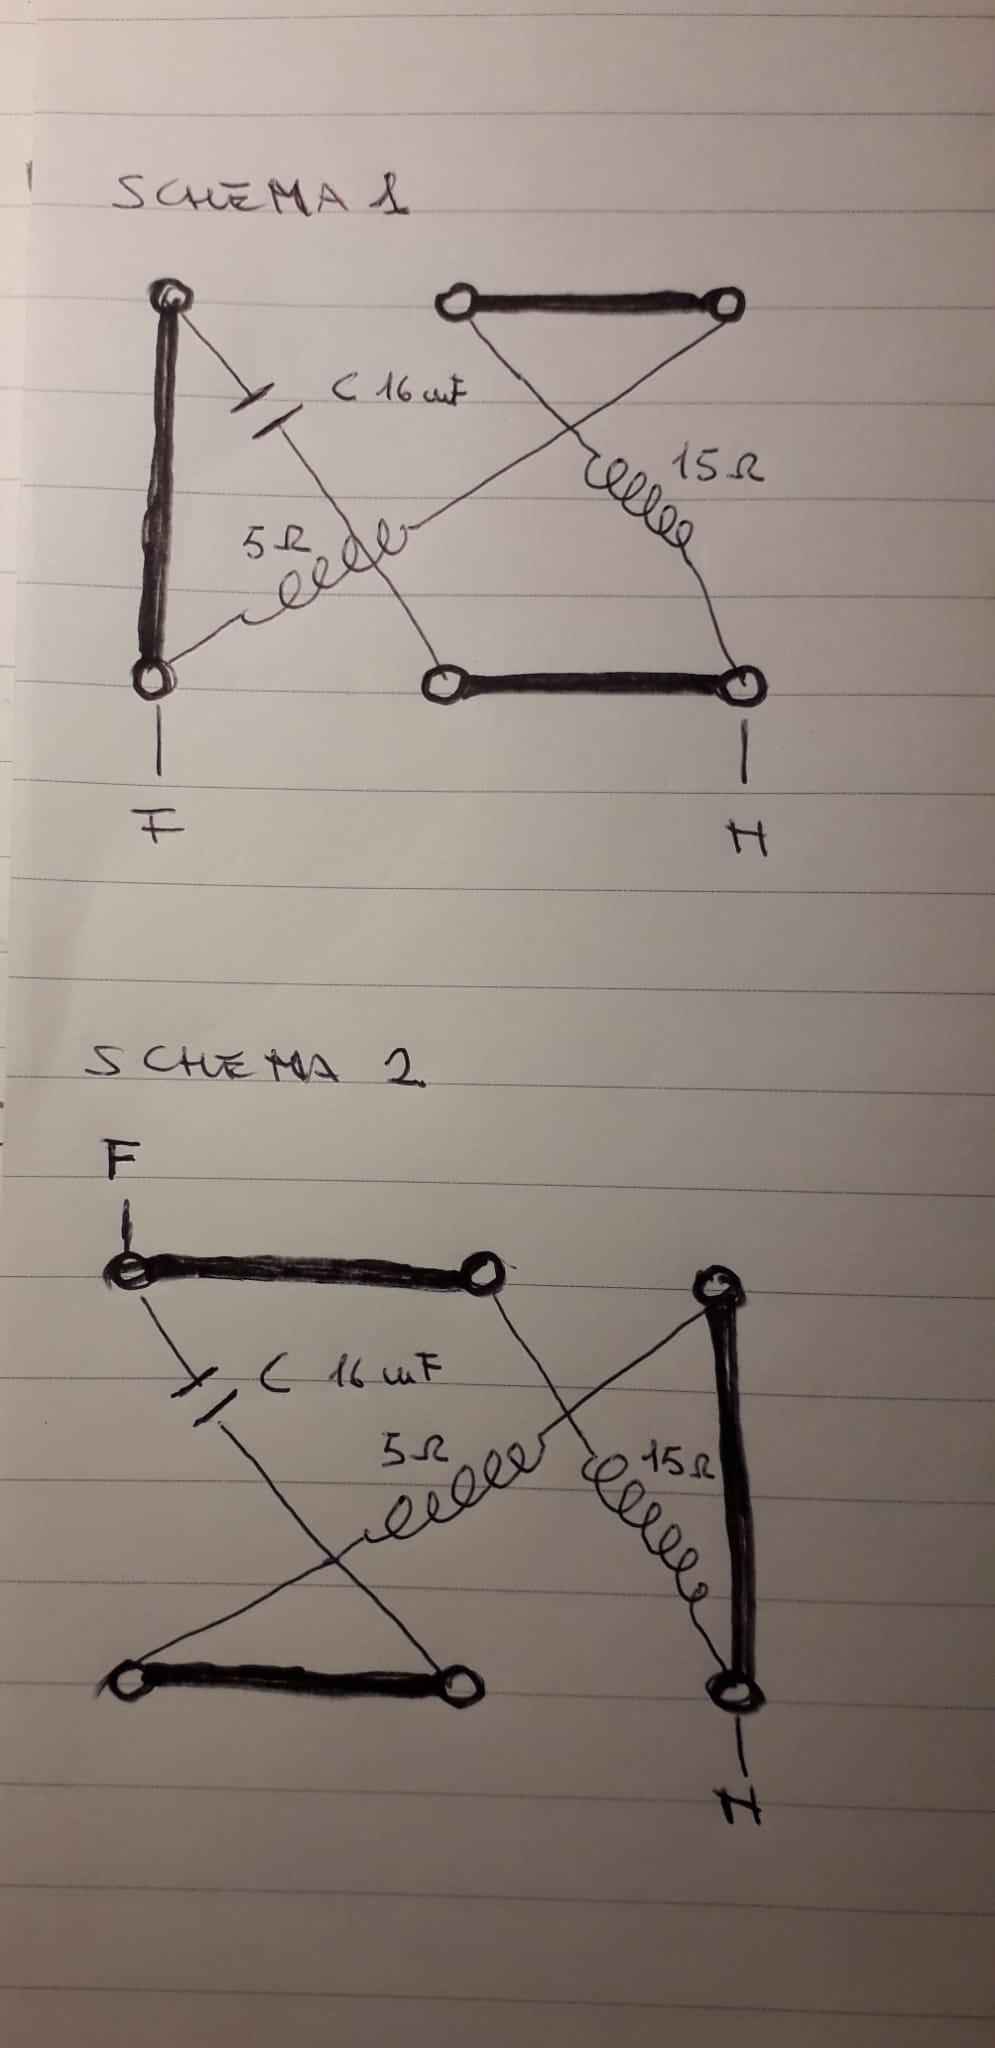 SCHEMA 1
C 16 uF
15Ω
5Ω
F
N
SCHEMA 2
F
C 16 uF
5Ω
15Ω
N